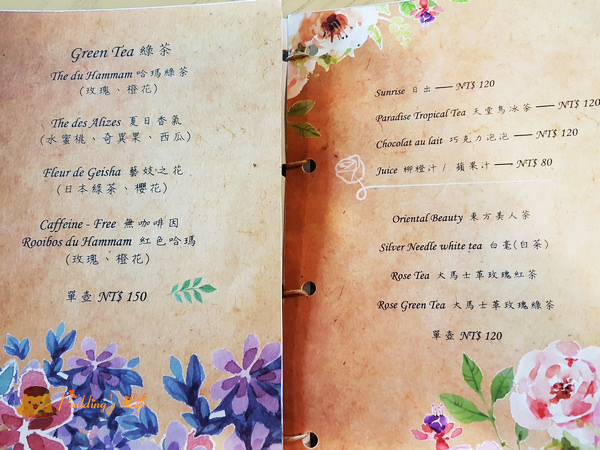 Green Tea 綠茶
The du Hammam 哈瑪綠茶
(玫瑰、橙花)
The des Alizes 夏日香氣
(水蜜桃、奇異果、西瓜)
Fleur de Geisha 藝妓之花
(日本綠茶、櫻花)
Caffeine - Free 無咖啡因
Rooibos du Hammam 紅色哈瑪
(玫瑰、橙花)
單壺 NT$ 150
Sunrise 日出 — NT$ 120
Paradise Tropical Tea 天堂鳥冰茶 — NT$ 120
Chocolat au lait 巧克力泡泡 — NT$ 120
Juice 柳橙汁 / 蘋果汁 — NT$ 80
Oriental Beauty 東方美人茶
Silver Needle white tea 白毫(白茶)
Rose Tea 大馬士革玫瑰紅茶
Rose Green Tea 大馬士革玫瑰綠茶
單壺 NT$ 120